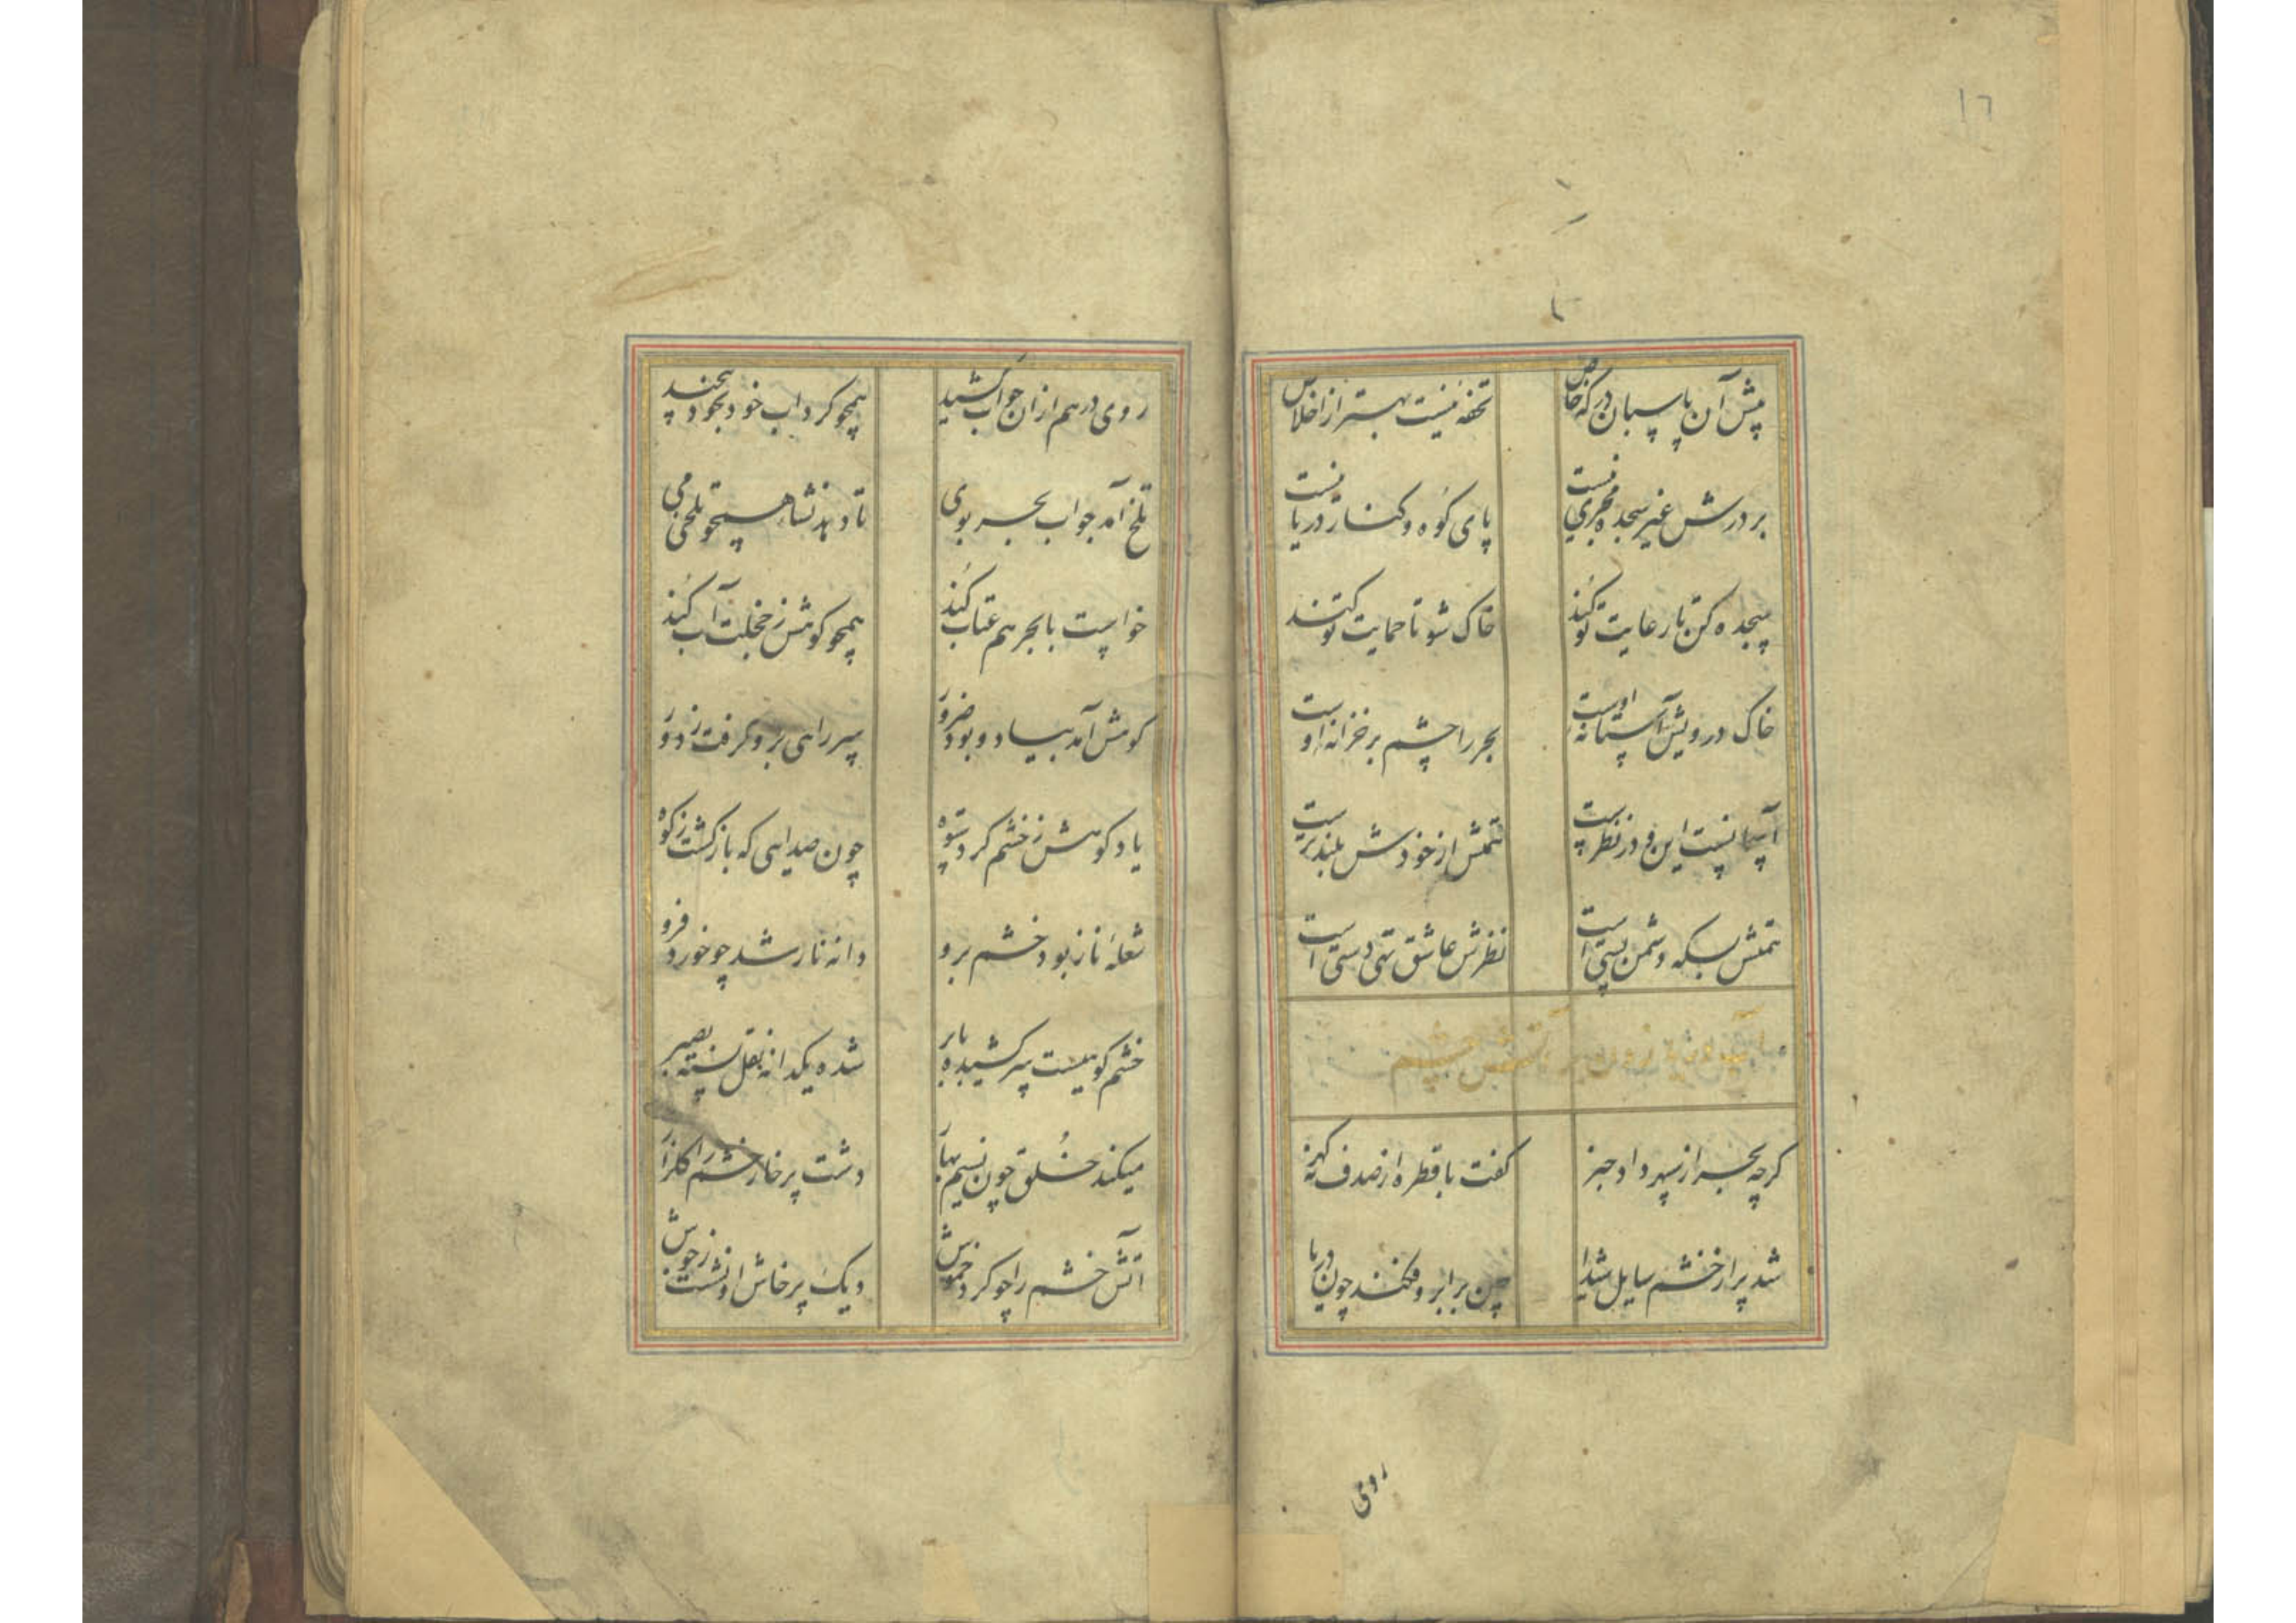 ١٦
پیش آن پاسبان درکه خاص
تحفهٔ نیست بهتر از اخلاص
بر درش غیر سجده مجری نیست
پای کوه و کنار دریا نیست
سجده کن تا رعایت تو کند
خاک شو تا حمایت تو کند
خاک درویش آستانه اوست
بحر را چشم بر خزانه اوست
آسیا نیست این و در نظر ست
همتش از خودش بلندتر ست
همتش بسکه دشمن پستی است
نظرش عاشق تهی دستی است
آب زدن بر آتش خشم
کرچه بحر از سپهر داد خبر
کفت با قطره از صدف کهر
شد پر از خشم سایل شیدا
چین بر ابرو فکند چون دریا
رومی
روی درهم ازان جواب کشید
همچو کرداب خود بخود پیچید
تلخ آمد جواب بحر بوی
تا دهد نشاه همچو تلخی می
خواست با بحر هم عتاب کند
همچو کوهش ز خجلت آب کند
کوهش آمد بیاد و بود ضرور
سر راهی برو کرفت ز دور
یاد کوهش ز خشم کرد ستوه
چون صدایی که بازکشت ز کوه
شعلهٔ ناز بود خشم برو
دانه نار شد چو خورد فرو
خشم کوهیست سر کشیده بابر
شده یکدانه نقل بصبر
میکند خُلق چون نسیم بهار
دشت پر خار خشم را کلزار
آتش خشم را چو کرد خموش
دیک پرخاش او نشست ز جوش